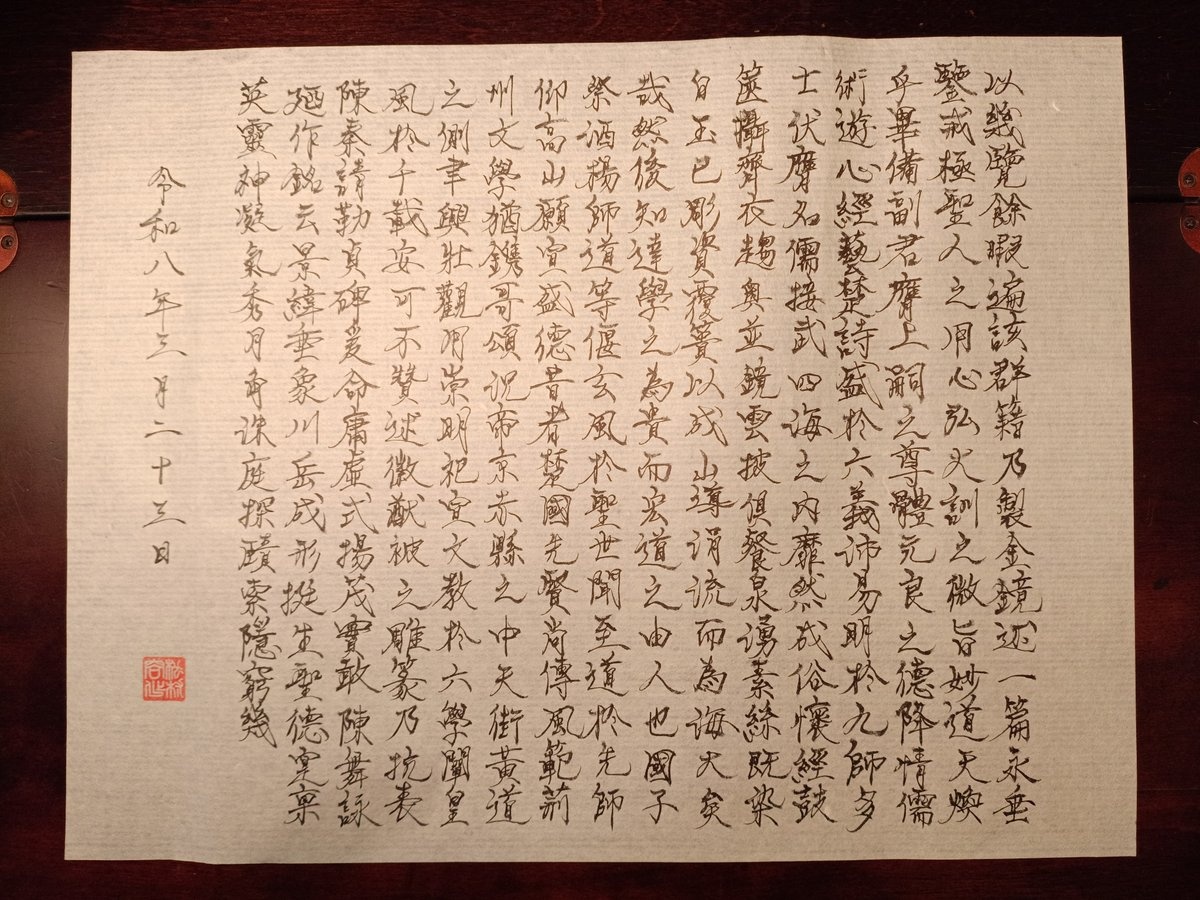 以幾覽餘暇遍該群籍乃製金鏡述一篇永垂
鑒戒極聖人之用心弘大訓之微旨妙道天煥
乎畢備副君膺上嗣之尊體元良之德降情儒
術遊心經藝楚詩盛於六義沛易明於九師多
士伏膺名儒接武四海之內靡然成俗懷經鼓
篋攝齊衣趨奧並鏡雲披俱餐泉湧素絲既染
白玉已彫資覆簣以成山導涓流而為海大矣
哉然後知達學之為貴而宏道之由人也國子
祭酒楊師道等偃玄風於聖世聞至道於先師
仰高山願宣盛德昔者楚國先賢尚傳風範荊
州文學猶鐫哥頌況帝京赤縣之中天街黃道
之側聿興壯觀用崇明祀宣文教於六學闡皇
風於千載安可不贊述徽猷被之雕篆乃抗表
陳奏請勒貞碑爰命庸虛式揚茂實敢陳舞詠
廼作銘云景緯垂象川岳成形挺生聖德寔稟
英靈神凝氣秀月角珠庭探賾索隱窮幾
令和八年三月二十三日